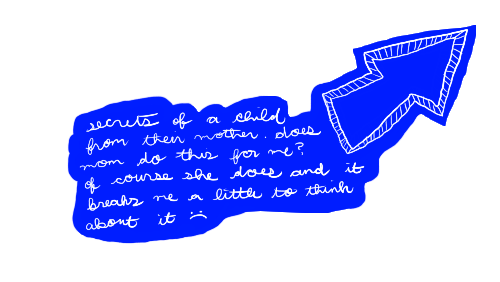 secrets of a child
from their mother. does
mom do this for me?
of course she does and it
breaks me a little to think
about it :(